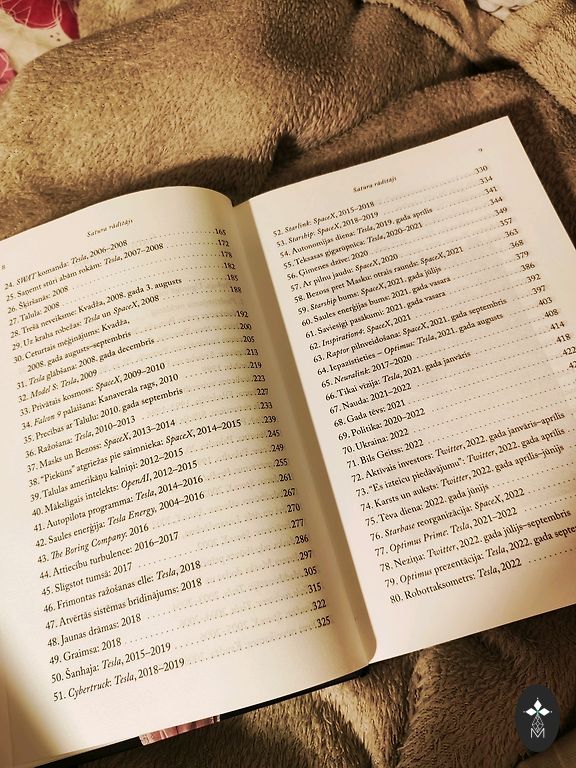 8
Satura rādītājs
24. SWAT komanda: Tesla, 2006–2008 165
25. Saņemt stūri abām rokām: Tesla, 2007–2008 172
26. Šķiršanās: 2008 178
27. Talula: 2008 182
28. Trešā neveiksme: Kvadža, 2008. gada 3. augusts 185
29. Uz kraha robežas: Tesla un SpaceX, 2008 188
30. Ceturtais mēģinājums: Kvadža,
2008. gada augusts–septembris 192
31. Tesla glābšana: 2008. gada decembris 200
32. Model S: Tesla, 2009 205
33. Privātais kosmoss: SpaceX, 2009–2010 213
34. Falcon 9 palaišana: Kanaverala rags, 2010 219
35. Precības ar Talulu: 2010. gada septembris 223
36. Ražošana: Tesla, 2010–2013 227
37. Masks un Bezoss: SpaceX, 2013–2014 233
38. “Piekūns” atgriežas pie saimnieka: SpaceX, 2014–2015 239
39. Talulas amerikāņu kalniņi: 2012–2015 245
40. Mākslīgais intelekts: OpenAI, 2012–2015 249
41. Autopilota programma: Tesla, 2014–2016 255
42. Saules enerģija: Tesla Energy, 2004–2016 261
43. The Boring Company: 2016 267
44. Attiecību turbulence: 2016–2017 270
45. Slīgstot tumsā: 2017 277
46. Frimontas ražošanas elle: Tesla, 2018 286
47. Atvērtās sistēmas brīdinājums: 2018 297
48. Jaunas drāmas: 2018 305
49. Graimsa: 2018 315
50. Šanhaja: Tesla, 2015–2019 322
51. Cybertruck: Tesla, 2018–2019 325
9
Satura rādītājs
52. Starlink: SpaceX, 2015–2018 330
53. Starship: SpaceX, 2018–2019 334
54. Autonomijas diena: Tesla, 2019. gada aprīlis 341
55. Teksasas gigarūpnīca: Tesla, 2020–2021 344
56. Ģimenes dzīve: 2020 349
57. Ar pilnu jaudu: SpaceX, 2020 357
58. Bezoss pret Masku: otrais raunds: SpaceX, 2021 363
59. Starship bums: SpaceX, 2021. gada jūlijs 368
60. Saules enerģijas bums: 2021. gada vasara 379
61. Saviesīgi pasākumi: 2021. gada vasara 386
62. Inspiration4: SpaceX, 2021 392
63. Raptor pilnveidošana: SpaceX, 2021. gada septembris 397
64. Iepazīstieties – Optimus: Tesla, 2021. gada augusts 403
65. Neuralink: 2017–2020 408
66. Tikai vīzija: Tesla, 2021. gada janvāris 414
67. Nauda: 2021–2022 418
68. Gada tēvs: 2021
69. Politika: 2020–2022
70. Ukraina: 2022
71. Bils Geitss: 2022
72. Aktīvais investors: Twitter, 2022. gada janvāris–aprīlis
73. “Es izteicu piedāvājumu”: Twitter, 2022. gada aprīlis
74. Karsts un auksts: Twitter, 2022. gada aprīlis–jūnijs
75. Tēva diena: 2022. gada jūnijs
76. Starbase reorganizācija: SpaceX, 2022
77. Optimus Prime: Tesla, 2021–2022
78. Neziņa: Twitter, 2022. gada jūlijs–septembris
79. Optimus prezentācija: Tesla, 2022. gada
80. Robottaksometrs: Tesla, 2022